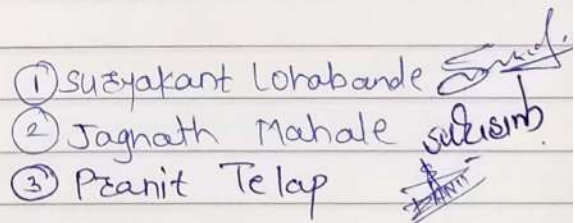 ① Suryakant Lohabande
② Jagnath Mahale
③ Pranit Telap